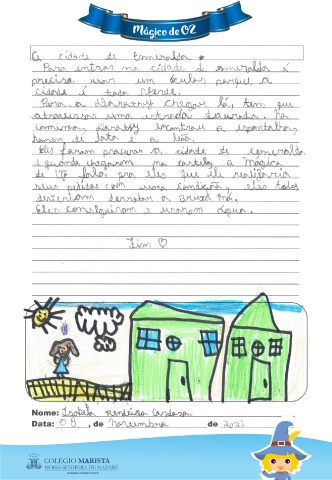 Mágico de OZ
A cidade de Esmeralda.
Para entrar na cidade de esmeralda é
preciso usar um óculos porque a
cidade é toda verde.
Para a Dorothy chegar lá, tem que
atravessar uma estrada dourada. No
caminho, Dorothy encontrou o espantalho,
homem de lata e o leão.
Eles foram procurar a cidade de esmeralda
e quando chegaram no castelo, o Mágico
de Oz falou pra eles que ele realizaria
seus pedidos com uma condição, eles todos
deveriam derrotar a Bruxa má.
Eles conseguiram e usaram água.
Fim ♡
Nome: Isabela Cardoso
Data: 08, de Novembro de 2021
COLÉGIO MARISTA
NOSSA SENHORA DE NAZARÉ